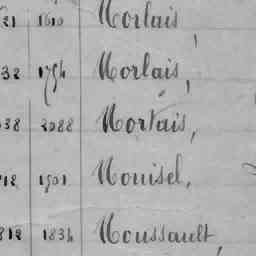 21 1610 Morlais
32 1754 Morlais,
038 2088 Mortais,
1901 Mouisel,
812 1834 Moussault,